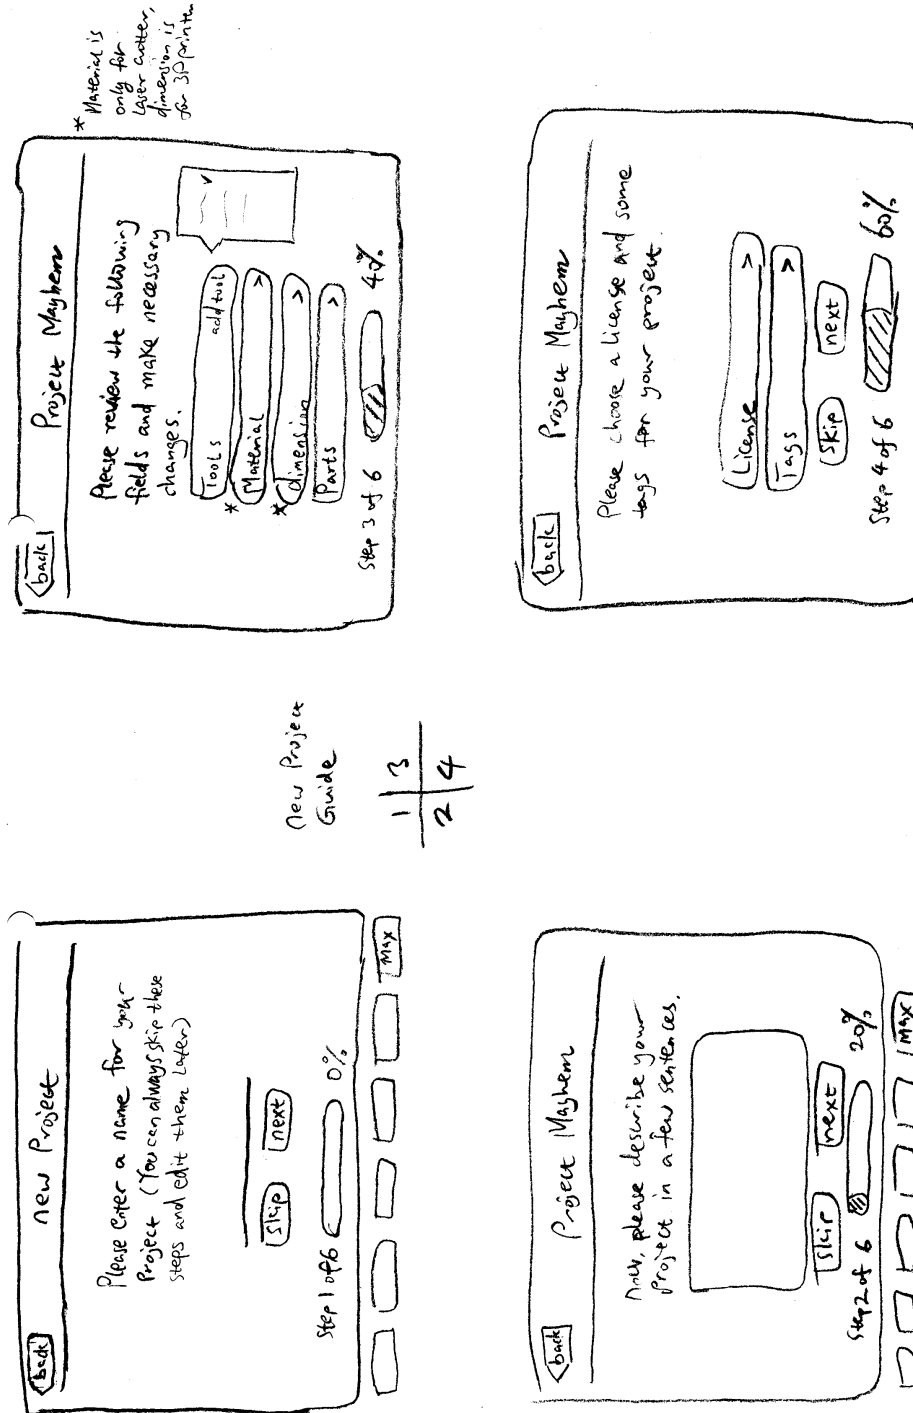 back
new Project
Please enter a name for your
Project (You can always skip these
steps and edit them later)
skip
next
Step 1 of 6
0%
Max
back
Project Mayhem
Now, please describe your
project in a few sentences.
skip
next
Step 2 of 6
20%
Max
new Project
Guide
1 3
2 4
back
Project Mayhem
Please review the following
fields and make necessary
changes.
Tools
add tool
* Material >
* dimension >
Parts >
Step 3 of 6
40%
* Material is
only for
Laser cutter,
dimension is
for 3D printer
back
Project Mayhem
Please choose a license and some
tags for your project.
License >
Tags >
Skip
next
Step 4 of 6
60%